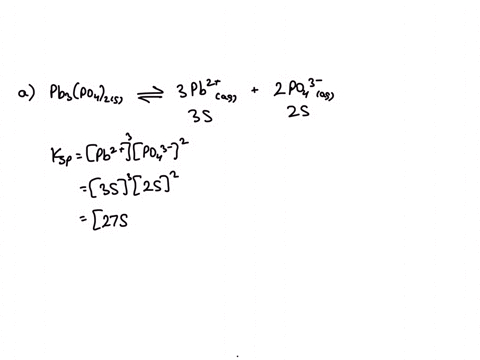 a) Pb₃(PO₄)₂(s) ⇌ 3Pb²⁺(aq) + 2PO₄³⁻(aq)
3S 2S
Ksp = [Pb²⁺]³[PO₄³⁻]²
= [3S]³[2S]²
= [27S